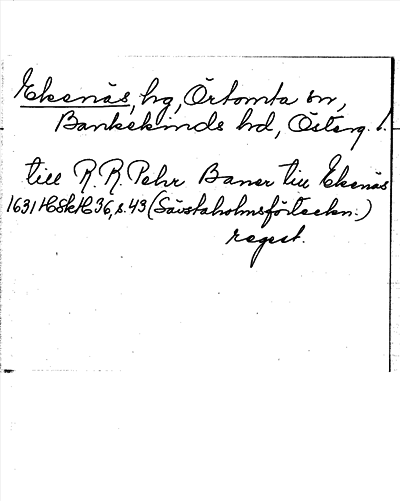 Ekenäs, hg, Örtomta sn,
Bankekinds hd, Österg. l.
till R. R. Pehr Baner till Ekenäs
1631 HSkH 36, s. 43 (Sävstaholmsförteckn.)
regest.